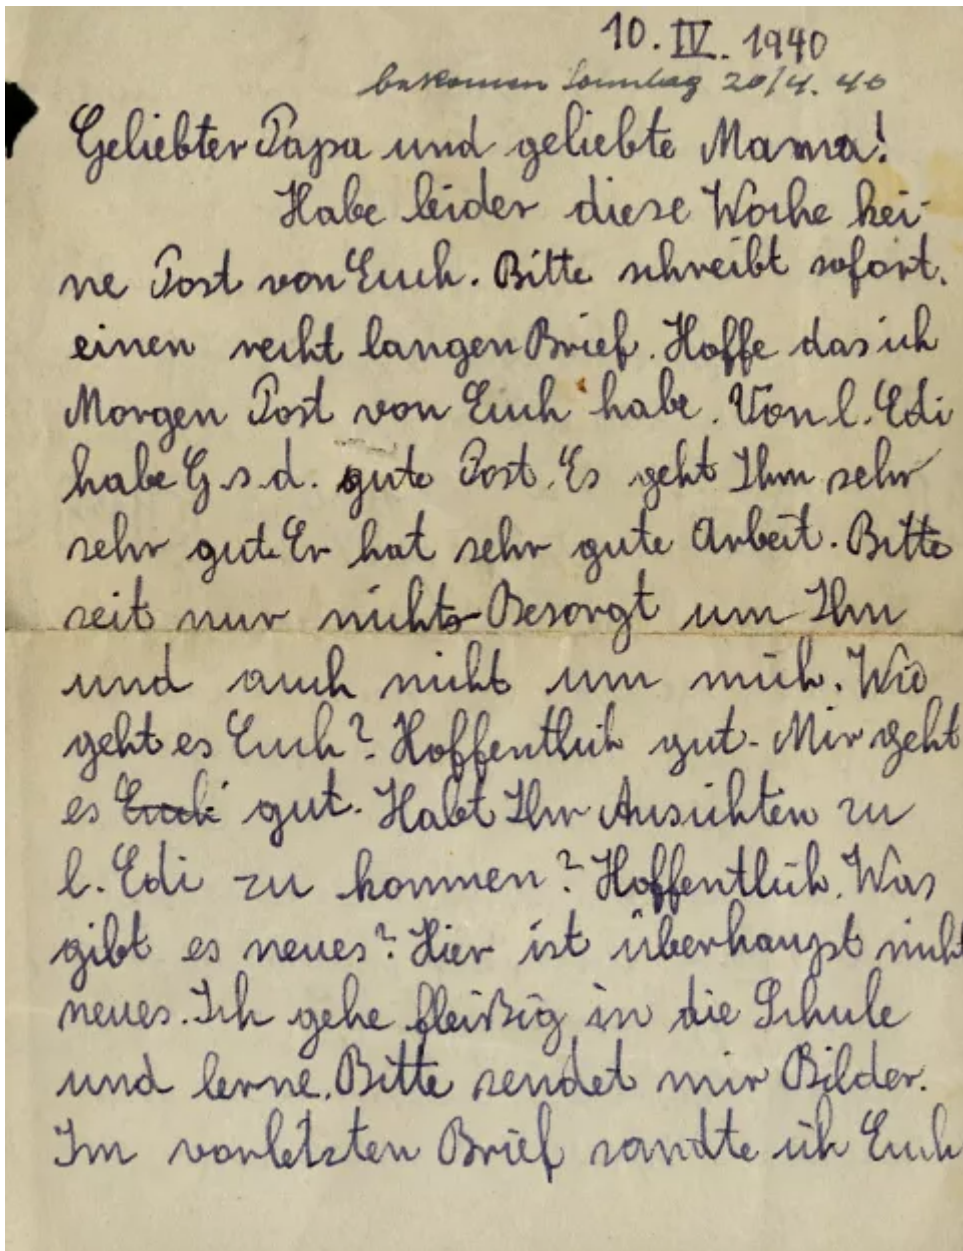 10. IV. 1940
bekomen Sonntag 20/4. 40
Geliebter Papa und geliebte Mama!
Habe leider diese Woche kei-
ne Post von Euch. Bitte schreibt sofort.
einen recht langen Brief. Hoffe das ich
Morgen Post von Euch habe. Von l. Edi
habe G.s.d. gute Post. Es geht Ihm sehr
sehr gut. Er hat sehr gute Arbeit. Bitte
seit nur nicht Besorgt um Ihn
und auch nicht um mich. Wie
geht es Euch? Hoffentlich gut. Mir geht
es Euch gut. Habt Ihr Aussichten zu
l. Edi zu kommen? Hoffentlich. Was
gibt es neues? Hier ist überhaupt nicht
neues. Ich gehe fleißig in die Schule
und lerne. Bitte sendet mir Bilder.
Im vorletzten Brief sandte ich Euch